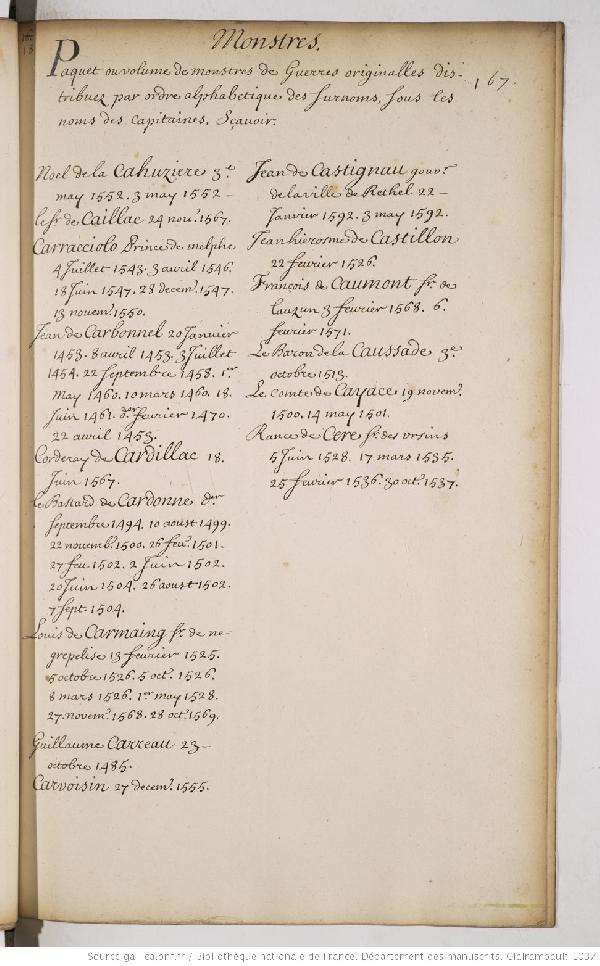 Monstres.
167.
Paquet ou volume de monstres de Guerres originalles dis-
tribuez par ordre alphabetique des surnoms, sous les
noms des capitaines, Sçavoir.
Noel de la Cahuziere 3.e
may 1552. 3 may 1552 –
le sr de Caillac 24 nov. 1567.
Carracciolo Prince de melphe
4 Juillet 1543. 3 avril 1546.
18 Juin 1547. 28 decem.r 1547.
13 novem.r 1550.
Jean de Carbonnel 20 Janvier
1453. 8 avril 1453. 3 Juillet
1454. 22 Septembre 1458. 1.er
May 1460. 10 mars 1460. 18.
Juin 1461. d.er fevrier 1470.
22 avril 1453.
Corderay de Cardillac 18.
Juin 1567.
le Bastard de Cardonne d.er
septembre 1494. 10 aoust 1499.
22 novemb.r 1500. 26 fev.r 1501.
27 fev. 1502. 2 Juin 1502.
20 Juin 1504. 26 aoust 1502.
7 sept. 1504.
Louis de Carmaing sr. de ne-
grepelise 13 fevrier 1525.
5 octobre 1526. 5 oct.r 1526.
8 mars 1526. 1.er may 1528.
27 novem.r 1568. 28 oct.r 1569.
Guillaume Carreau 23 –
octobre 1485.
Carvoisin 27 decem.r 1555.
Jean de Castignau gouv.r
de la ville de Rethel 22 –
Janvier 1592. 3 may 1592.
Jean hierosme de Castillon
22 fevrier 1526.
François de Caumont sr. de
lauzun 3 fevrier 1568. 6.
fevrier 1571.
Le Baron de la Caussade 3.e
octobre 1513.
Le Comte de Cayace 19 novem.r
1500. 14 may 1501.
Rance de Cere sr. des ursins
5 Juin 1528. 17 mars 1535.
25 fevrier 1536. 30 oct.r 1537.
Source gallica.bnf.fr / Bibliothèque nationale de France. Département des manuscrits. Clairambault 1037